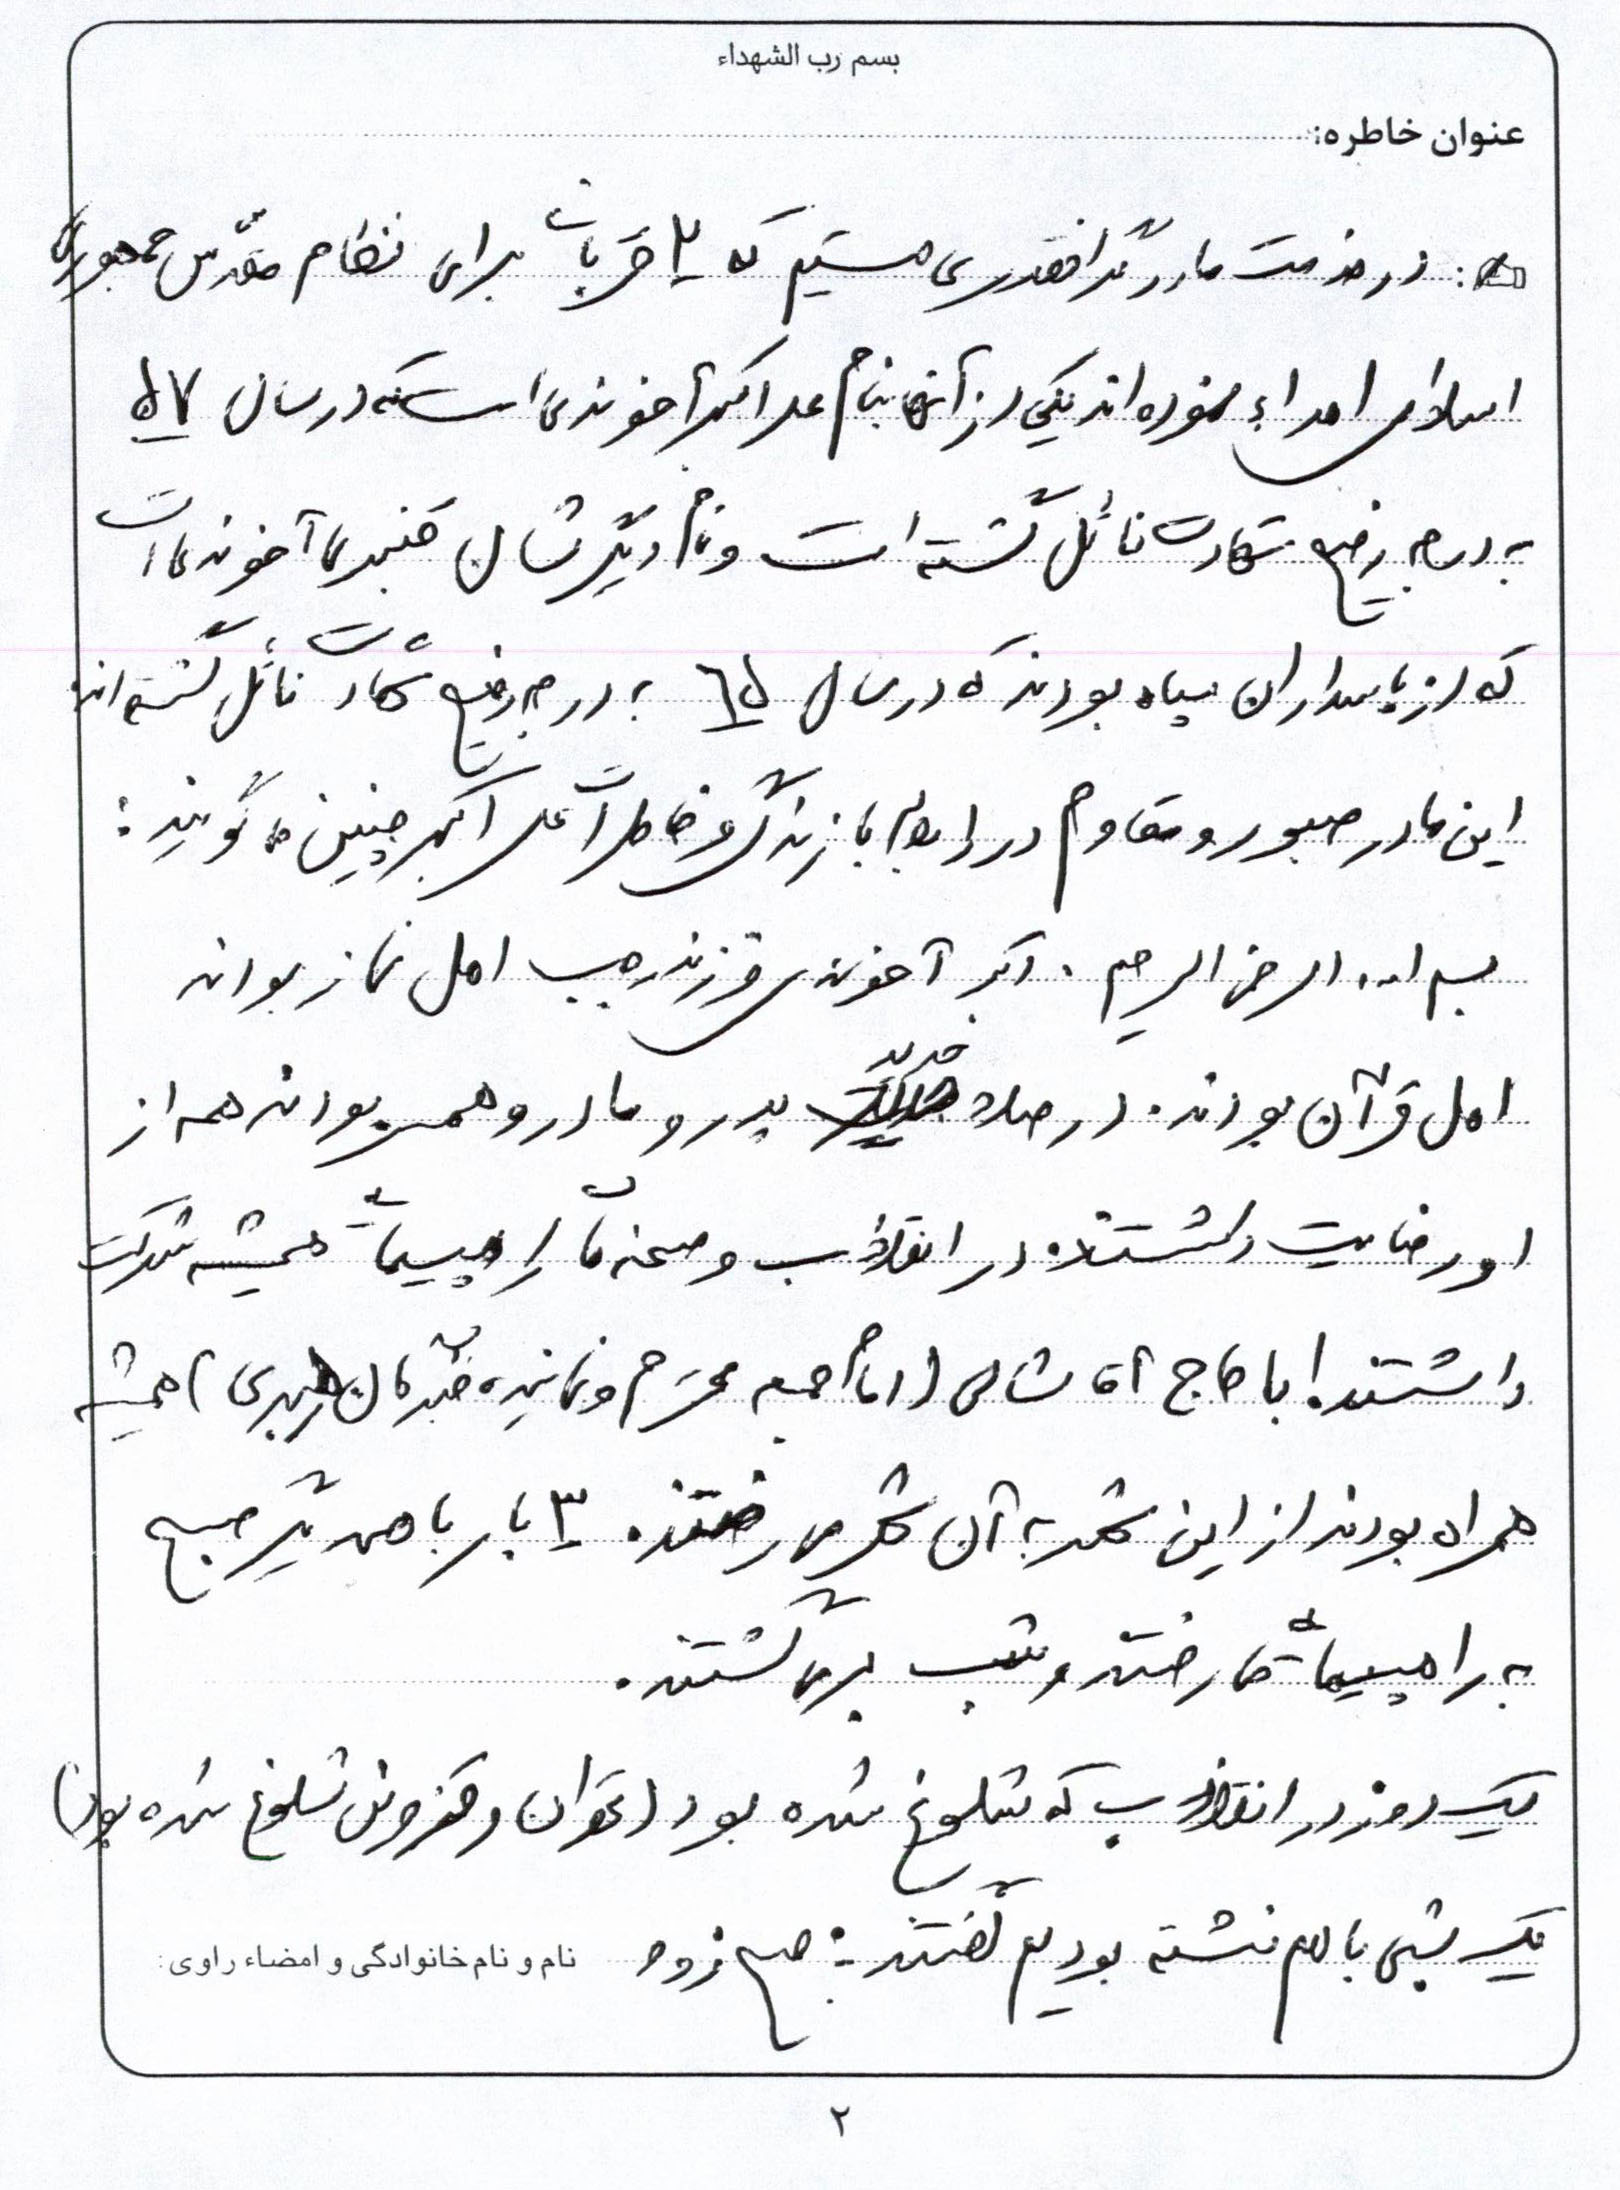 بسم رب الشهداء
عنوان خاطره:
در خدمت مادر گرانقدری هستیم که ۲ قربانی برای نظام مقدس جمهوری
اسلامی اهداء نموده اند یکی از آنها بنام علی اکبر آخوندی است که در سال ۵۷
به درجه رفیع شهادت نائل گشته است و نام دیگرشان قنبرعلی آخوندی است
که از پاسداران سپاه بودند که در سال ۶۵ به درجه رفیع شهادت نائل گشته اند
این مادر صبور و مقاوم در رابطه با زندگی و خاطرات علی اکبر چنین می گویند:
بسم الله الرحمن الرحیم. اکبر آخوندی فرزند اهل نماز بودند
اهل قرآن بودند. در پدر و مادر و همسر بودند همه از
او رضایت داشتند. در انقلاب و صحنه های راهپیمائی همیشه شرکت
داشتند! با حاج آقا (امام جمعه محترم و نماینده خبرگان رهبری) همیشه
همراه بودند از این شهر به آن شهر می رفتند. ۳ بار با همدیگر صبح
به راهپیمائی می رفتند و شب برمی گشتند.
یک روز در انقلاب که شلوغ شده بود (تهران و قزوین شلوغ شده بود)
یک شبی با هم نشسته بودیم گفتند: صبح زود
نام و نام خانوادگی و امضاء راوی:
۲